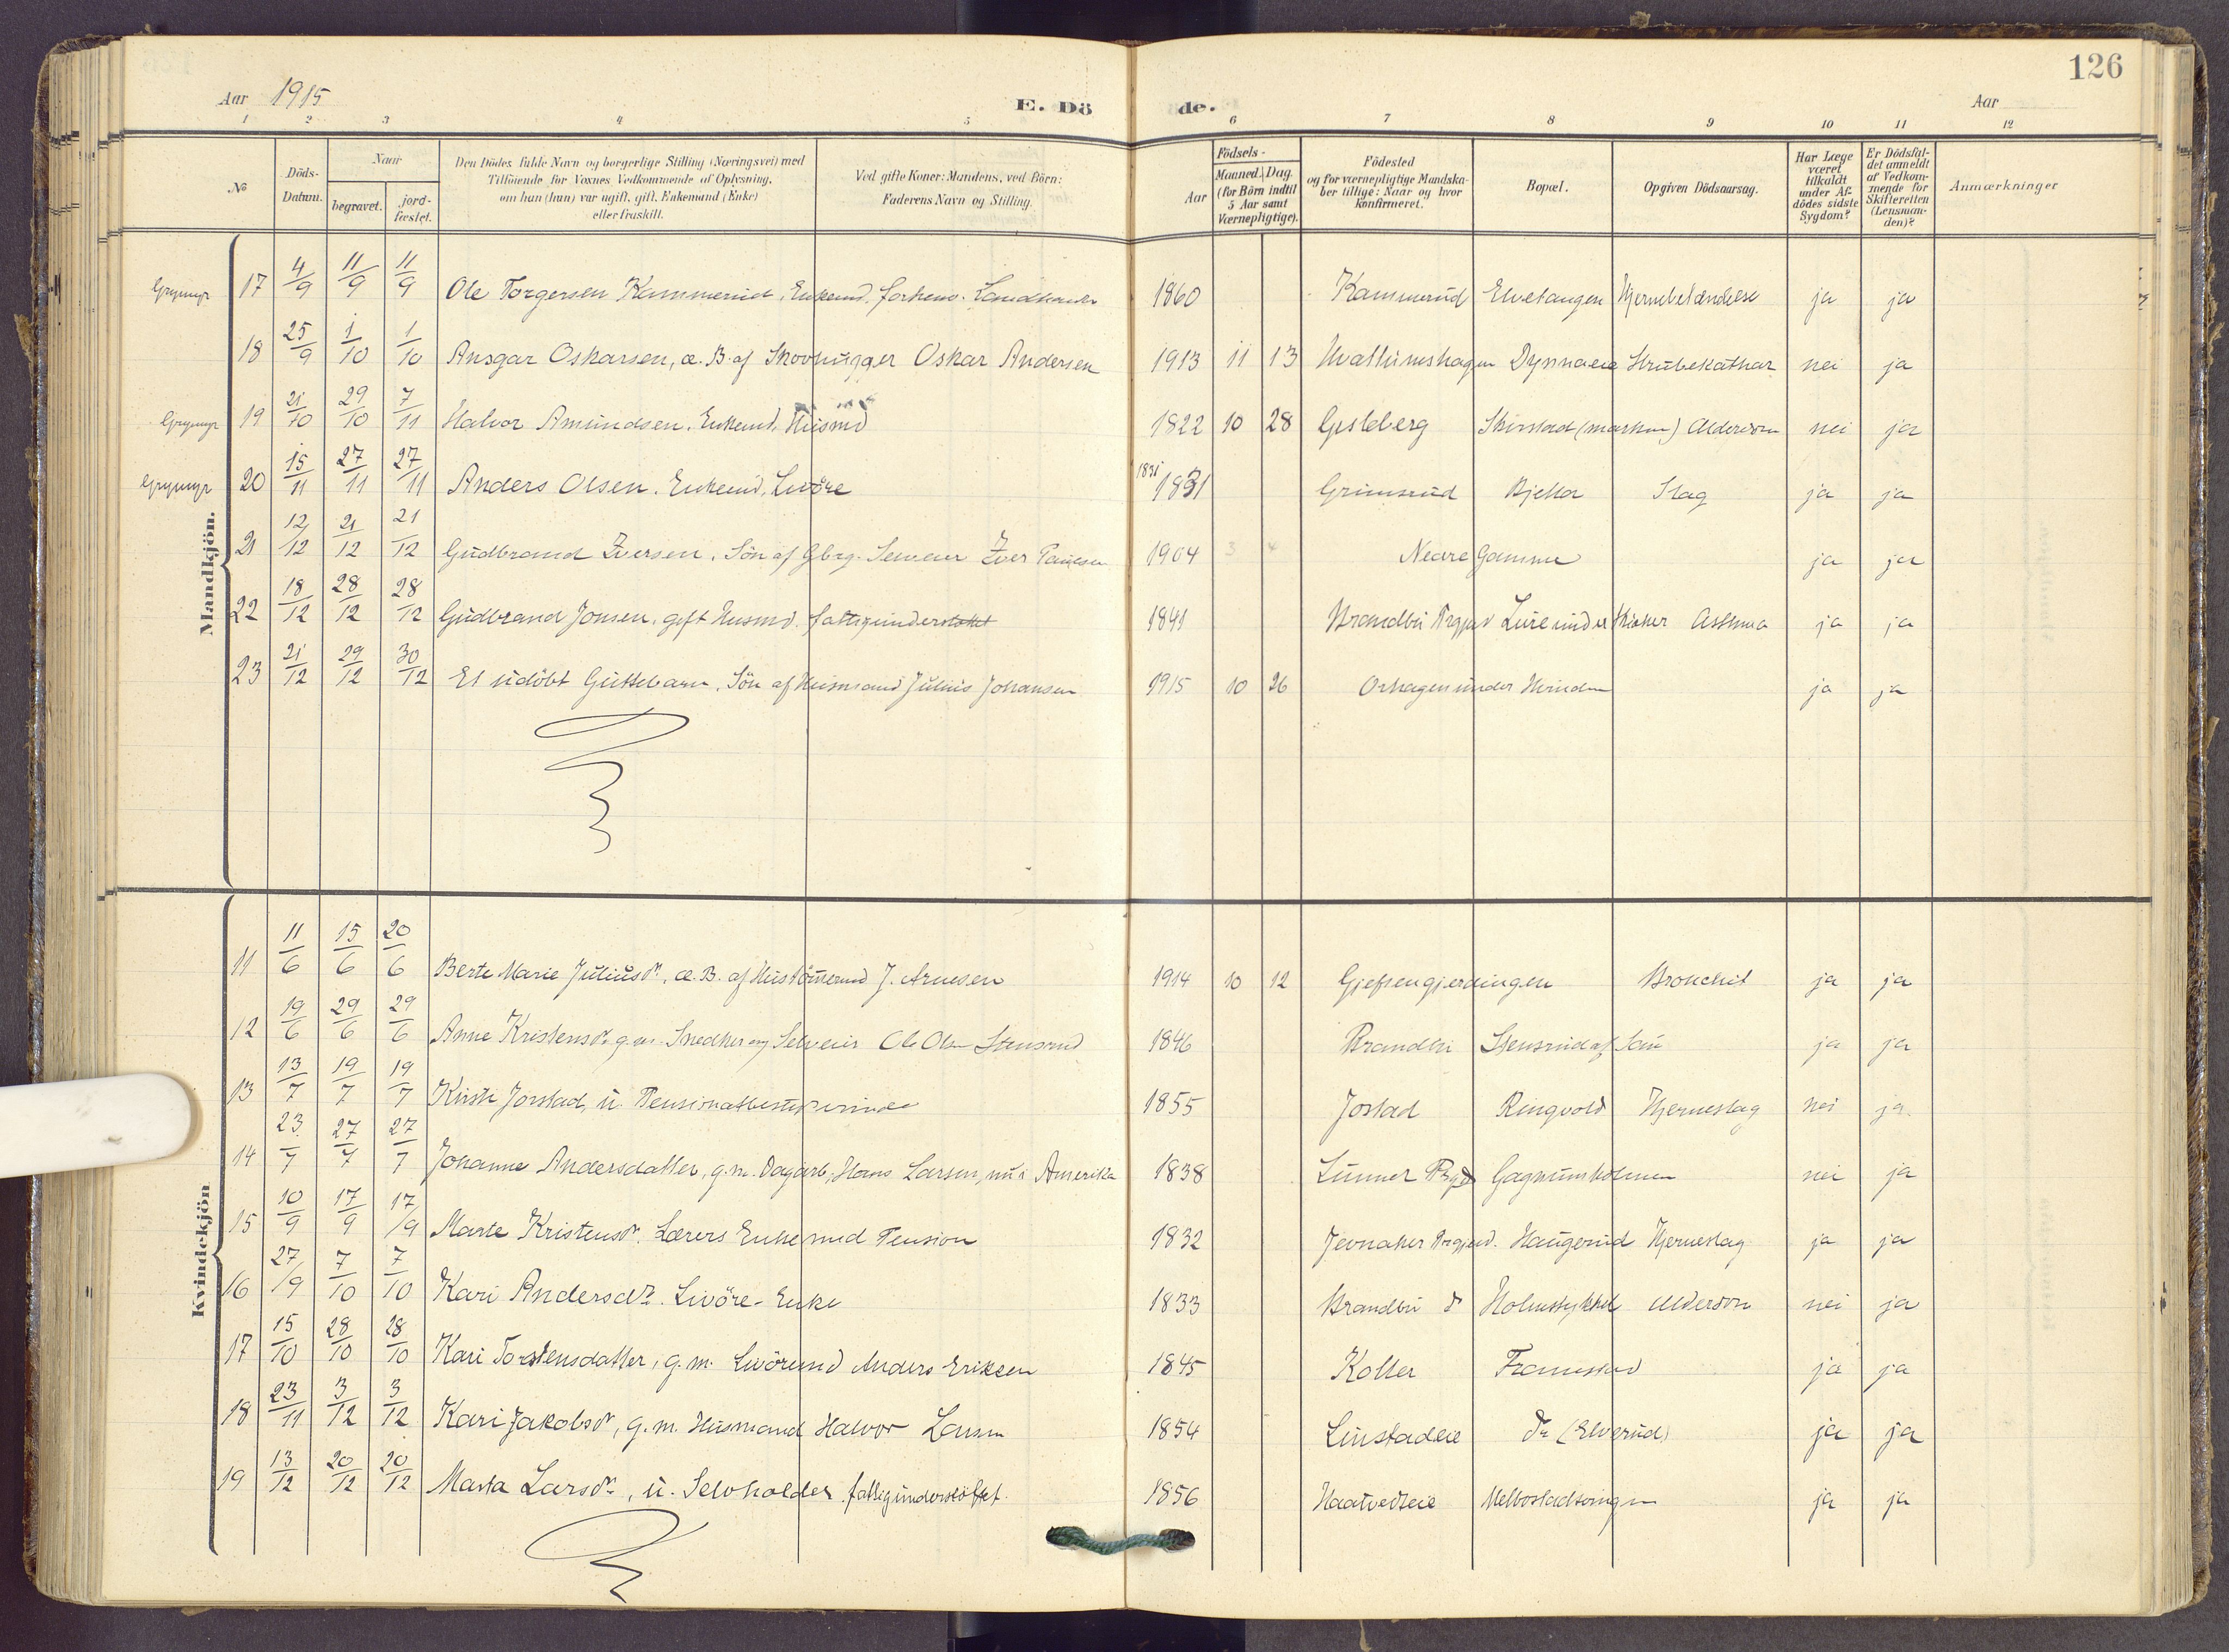 126
Aar 1915 E. Dö de. Aar
1 2 3 4 5 6 7 8 9 10 11 12
No Döds-Datum. Naar begravet. jord-fæstet. Den Dödes fulde Navn og borgerlige Stilling (Næringsvei) med Tilföiende for Voxnes Vedkommende af Oplysning, om han (hun) var ugift, gift, Enkemand (Enke) eller fraskilt. Ved gifte Koner: Mandens, ved Börn: Faderens Navn og Stilling. Aar Födsels- Maaned. Dag. (for Börn indtil 5 Aar samt Værnepligtige). Födested og for værnepligtige Mandskaber tillige: Naar og hvor konfirmeret. Bopæl. Opgiven Dödsaarsag. Har Læge været tilkaldt under Afdödes sidste Sygdom? Er Dödsfaldet anmeldt af Vedkommende for Skifteretten (Lensmanden)? Anmærkninger
Mandkjön.
Grymyr 17 4/9 11/9 11/9 Ole Torgersen Kammerud, Enkemd. forhenv. Landhandler 1860 Kammerud Elvetangen Hjernebetændelse ja ja
18 25/9 1/10 1/10 Ansgar Oskarsen, æ. B. af Skovhugger Oskar Andersen 1913 11 13 Hvattumshagen Dynnaeie Strubekathar nei ja
Grymyr 19 21/10 29/10 7/11 Halvor Amundsen. Enkemd. Husmd 1822 10 28 Gisleberg Skirstad (marken) Alderdom nei ja
Grymyr 20 15/11 27/11 27/11 Anders Olsen. Enkemd. Livöre 1831 1831 Grimsrud Bjella Slag ja ja
21 12/12 21/12 21/12 Gudbrand Iversen. Sön af Gbrg. Selveier Iver Paulsen 1904 3 4 Nedre Gamme ja ja
22 18/12 28/12 28/12 Gudbrand Jonsen, gift Husmd. fattigunderstöttet 1841 Brandbu Prgjed Lure under Kioker Asthma ja ja
23 21/12 29/12 30/12 Et udöbt Guttebarn. Sön af Husmand Julius Johansen 1915 10 26 Orhagen under Hvinden ja ja
Kvindekjön
11 11/6 15/6 20/6 Berte Marie Juliusdr, æ. B. af Hustömmermd J. Arnesen 1914 10 12 Gjefsengjerdingen Bronchit ja ja
12 19/6 29/6 29/6 Anne Kristensdr g. m. Snedker og Selveier Ole Olsen Stensrud 1846 Brandbu Stensrud af Sau ja ja
13 13/7 19/7 19/7 Kirsti Jorstad, u. Pensionatbestyrerinde 1855 Jostad Ringvold Hjerneslag nei ja
14 23/7 27/7 27/7 Johanne Andersdatter, g.m. Dagarb. Hans Larsen, nu i Amerika 1838 Lunner Prgd Gagnumholmen nei ja
15 10/9 17/9 17/9 Marte Kristensdr. Lærers Enke med Pension 1832 Jevnaker Prgjed. Haugerud Hjerneslag ja ja
16 27/9 7/10 7/10 Kari Andersdr. Livöre-Enke 1833 Brandbu Do Holmstykket Alderdom nei ja
17 15/10 28/10 28/10 Kari Torstensdatter, g. m. Livöremd Anders Eriksen 1845 Koller Framstad ja ja
18 23/11 3/12 3/12 Kari Jakobsdr, g. m. Husmand Halvor Larsen 1854 Linstadeie Do (Elverud) ja ja
19 13/12 20/12 20/12 Marta Larsdr, u. Selvholder fattigunderstöttet. 1856 Haatvedteie Melbostadsvingen ja ja